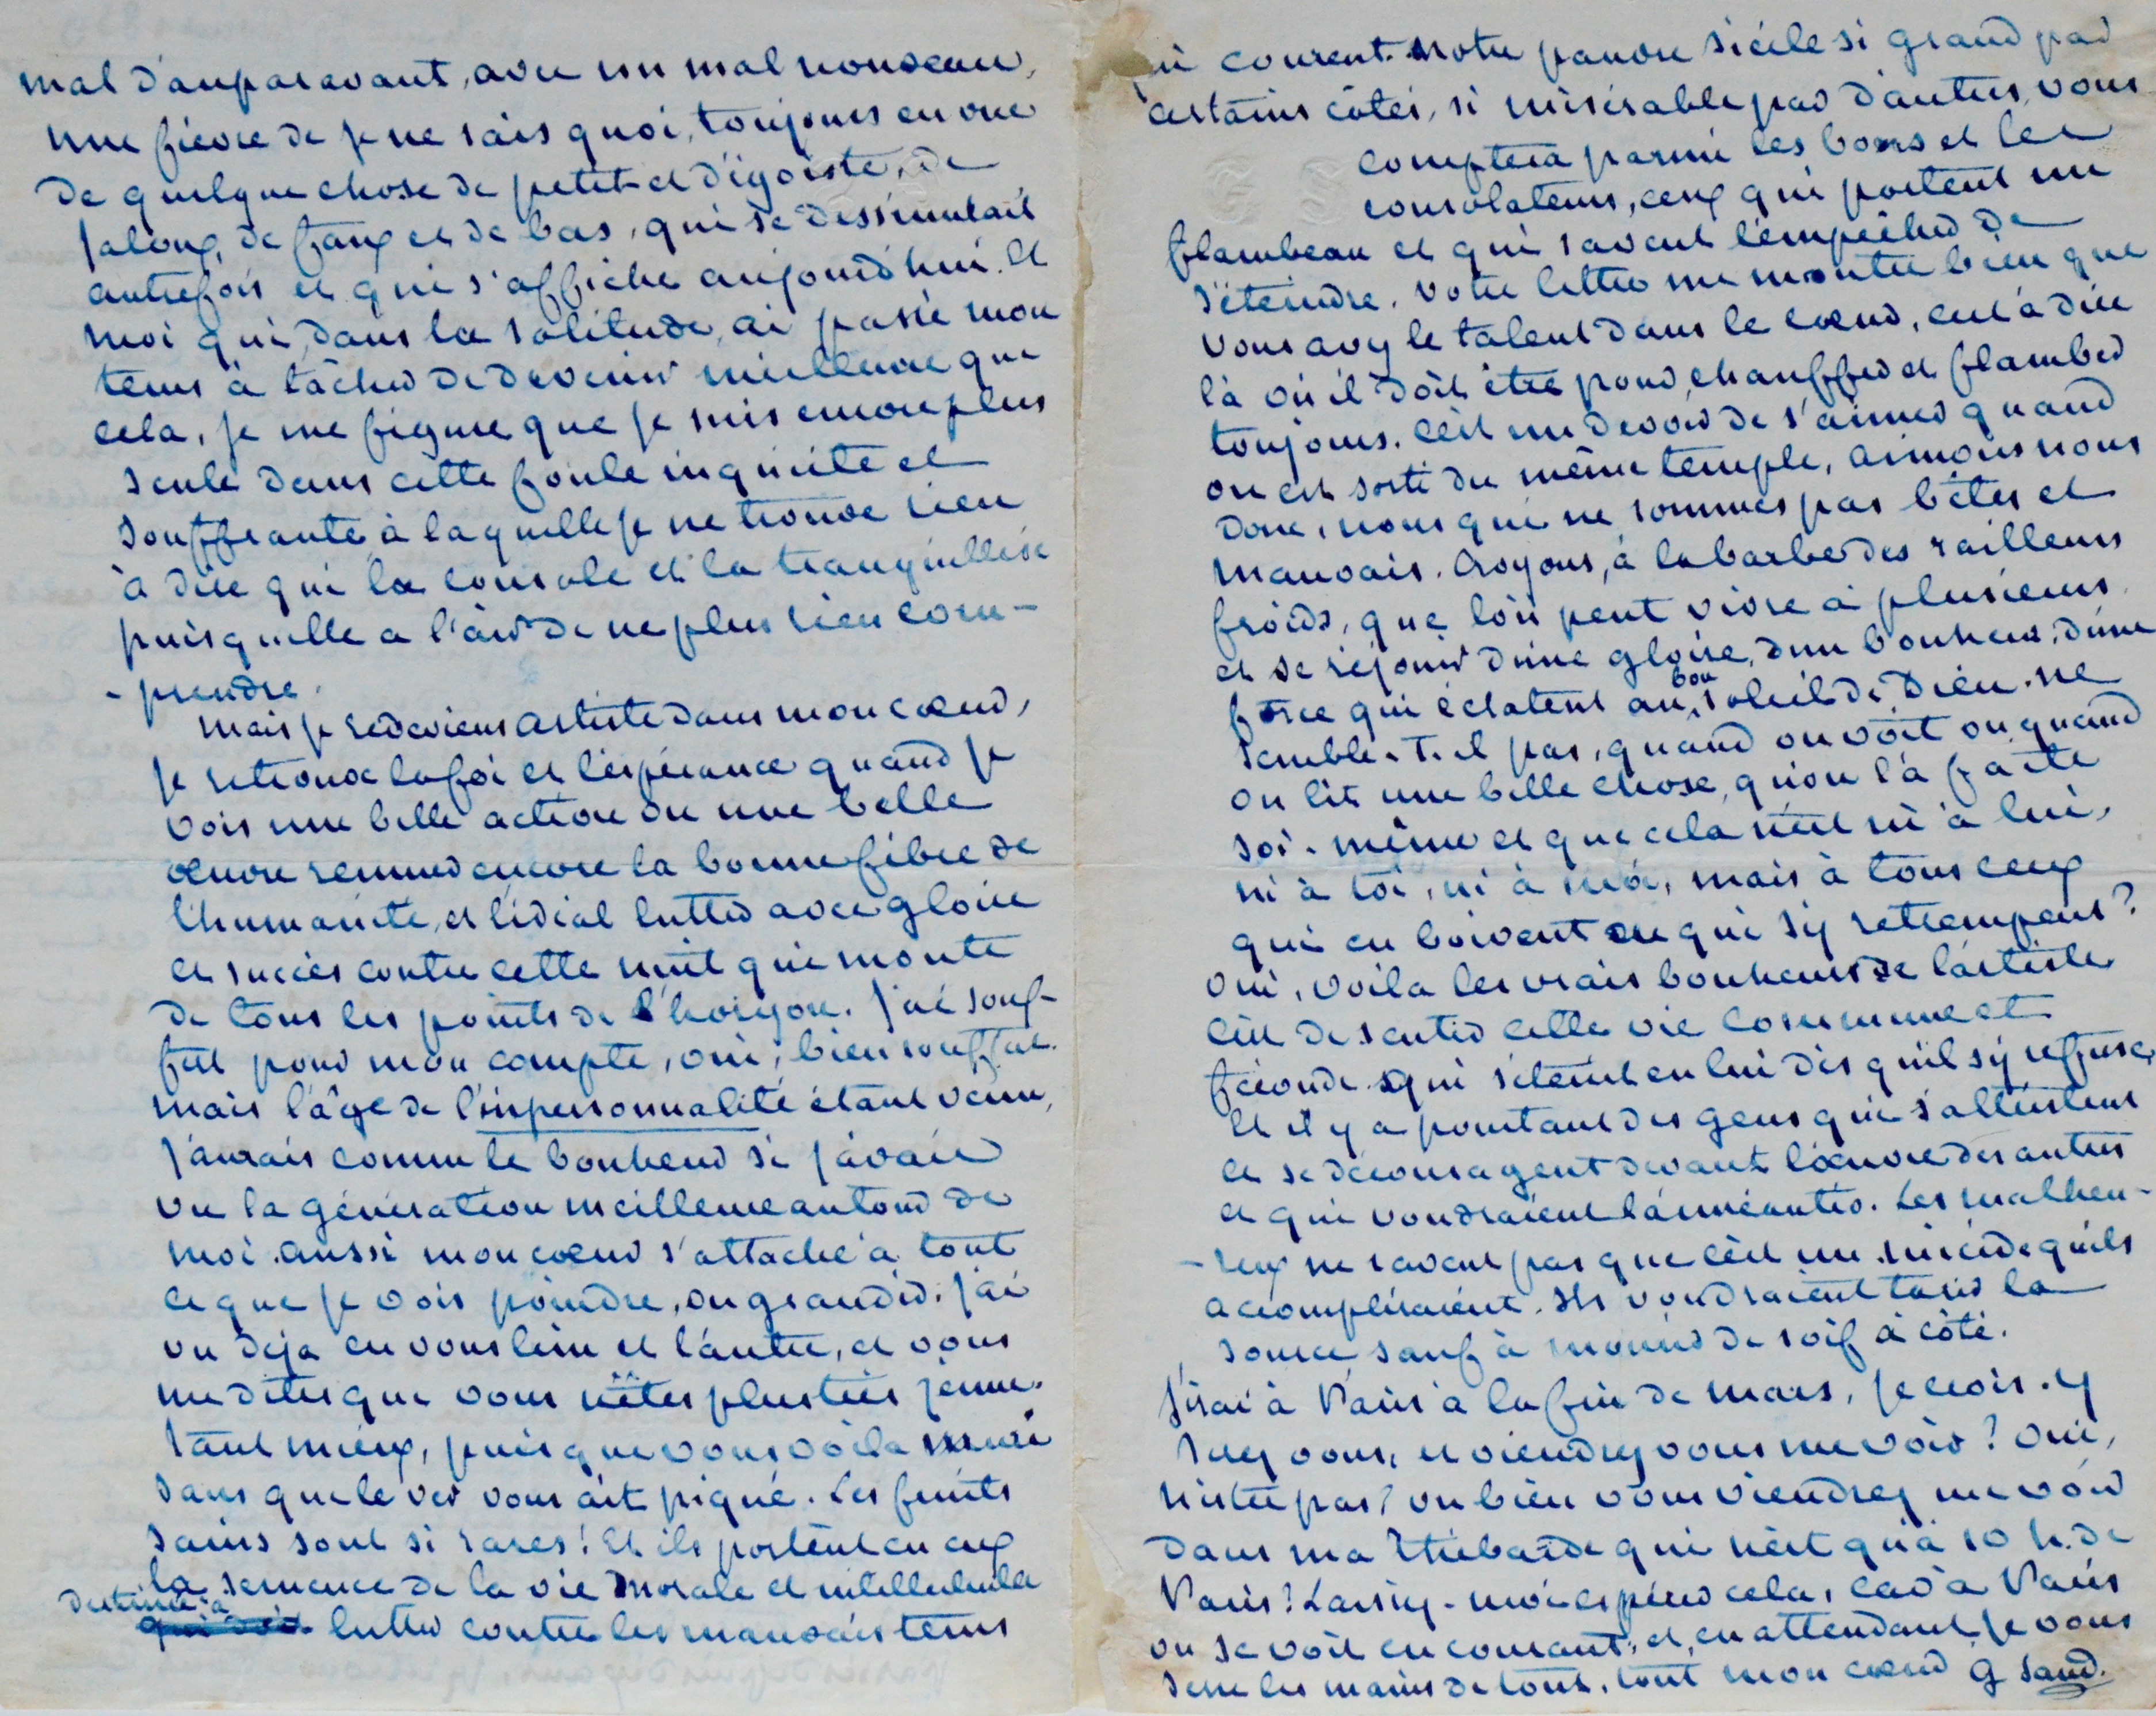 mal d'auparavant, avec un mal nouveau,
une fièvre de je ne sais quoi, toujours en vue
de quelque chose de petit et d'égoïste, de
jaloux, de faux et de bas, qui se dissimulait
autrefois et qui s'affiche aujourd'hui. Et
moi qui, dans la solitude, ai passé mon
tems à tâcher de devenir meilleure que
cela, je me figure que je suis encore plus
seule dans cette foule inquiète et
souffrante à laquelle je ne trouve rien
à dire qui la console et la tranquillise
puisqu'elle a l'air de ne plus rien com-
-prendre.
Mais je redeviens artiste dans mon cœur,
je retrouve la foi et l'espérance quand je
vois une belle action ou une belle
œuvre remuer encore la bonne fibre de
l'humanité, et l'idéal lutter avec gloire
et succès contre cette nuit qui monte
de tous les points de l'horizon. J'ai souf-
fert pour mon compte, oui, bien souffert.
mais l'âge de l'impersonnalité étant venu,
j'aurais connu le bonheur si j'avais
vu la génération meilleure autour de
moi. aussi mon cœur s'attache à tout
ce que je vois poindre, ou grandir. j'ai
vu déja en vous l'un et l'autre, et vous
me dites que vous n'êtes plus très jeune.
Tant mieux, puisque vous voila muri
sans que le ver vous ait piqué. Les fruits
sains sont si rares! Et ils portent en eux
la semence de la vie morale et intellectuelle
destinée à lutter contre les mauvais tems
qui courent. Notre pauvre siècle si grand par
certains côtés, si misérable par d'autres, vous
comptera parmi les bons et les
consolateurs, ceux qui portent un
flambeau et qui savent l'empêcher de
s'éteindre. Votre lettre me montre bien que
vous avez le talent dans le cœur, c'est à dire
là où il doit être pour chauffer et flamber
toujours. C'est un devoir de s'aimer quand
on est sorti du même temple, aimons nous
donc, nous qui ne sommes pas bêtes et
mauvais. Croyons, à la barbe des railleurs
froids, que l'on peut vivre à plusieurs
et se réjouir d'une gloire, d'un bonheur, d'une
force qui éclatent au bon soleil de Dieu. Ne
semble-t-il pas, quand on voit ou quand
on lit une belle chose, qu'on l'a faite
soi-même et que cela n'est ni à lui,
ni à toi, ni à moi, mais à tous ceux
qui en boivent ou qui s'y retrempent?
Oui, voila les vrais bonheurs de l'artiste
c'est de sentir cette vie commune et
féconde qui s'éteint en lui dès qu'il s'y refuse,
Et il y a pourtant des gens qui s'attristent
et se découragent devant l'œuvre des autres
et qui voudraient l'anéantir. Les malheu-
-reux ne savent pas que c'est un suicide qu'ils
accompliraient. Ils voudraient tarir la
source sauf à mourir de soif à côté.
J'irai à Paris à la fin de mars, je crois. y
serez vous, et viendrez vous me voir? Oui,
n'est ce pas? ou bien vous viendrez me voir
dans ma Thébaïde qui n'est qu'à 10 h. de
Paris? Laissez-moi espérer cela, car à Paris
on se voit en courant, et, en attendant, je vous
serre les mains de tout, tout mon cœur G Sand.